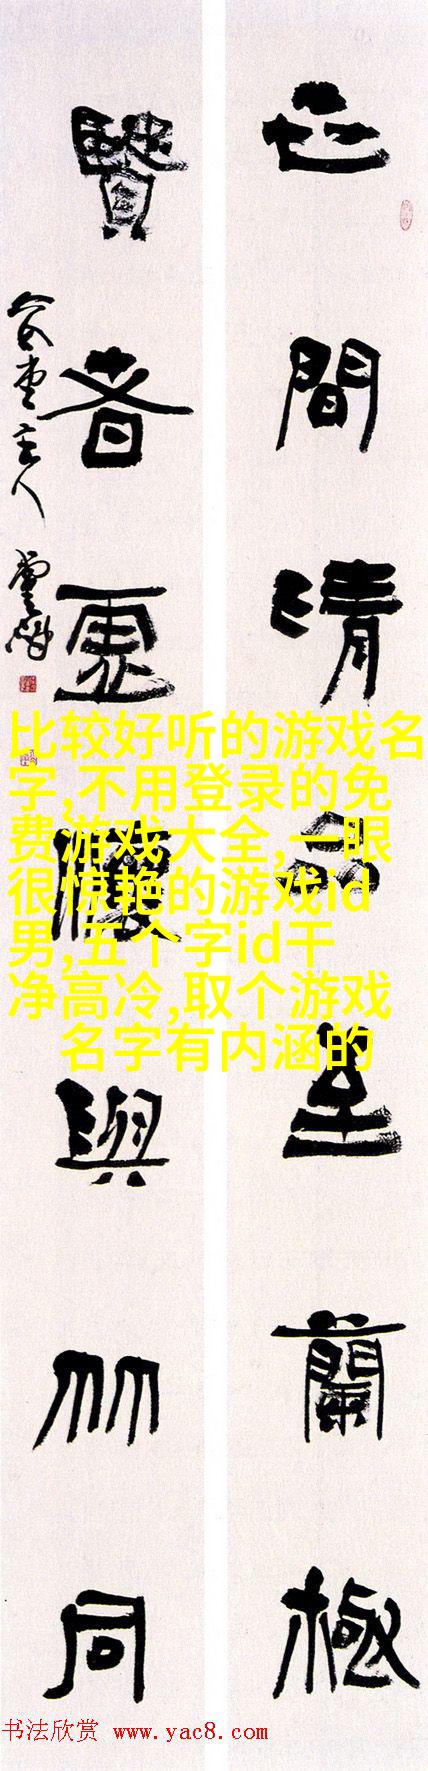 世間清品至蘭極
賢者虛懷與竹同
堂主人
比较好听的游戏名
字,不用登录的免
费游戏大全,一眼
很惊艳的游戏id
男,五个字id干
净高冷,取个游戏
名字有内涵的
书法欣赏 www.yac8.com